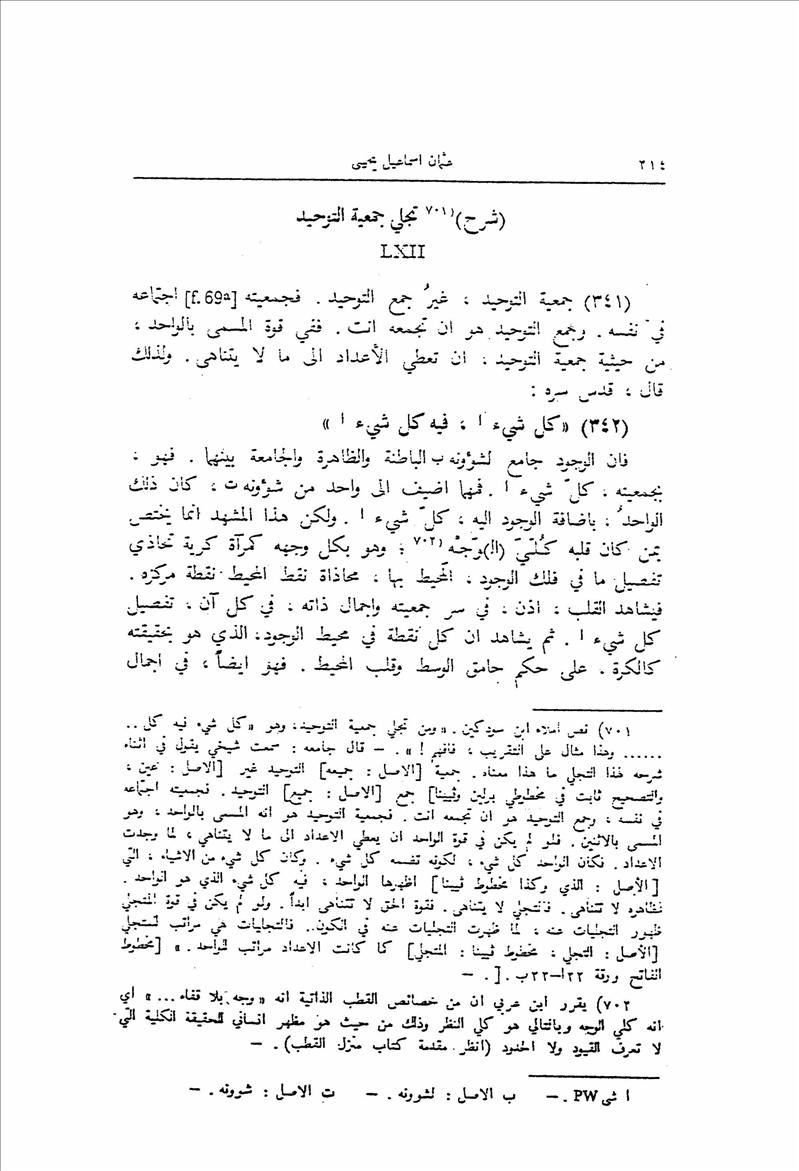 ٢١٤ عثمان اسماعيل يحيى
(شرح)٧٠١) تجلي جمعية التوحيد
LXII
(٣٤١) جمعية التوحيد ، غيرُ جمع التوحيد . فجمعيته [f. 69a] اجتماعه
في نفسه . وجمع التوحيد هو ان تجمعه انت . ففي قوة المسمى بالواحد ،
من حيثية جمعية التوحيد ، ان تعطي الأعداد الى ما لا يتناهى . ولذلك
قال ، قدس سره :
(٣٤٢) «كل شيء ا ، فيه كل شيء ا »
فان الوجود جامع لشؤونه ب الباطنة والظاهرة والجامعة بينهما . فهو ،
بجمعيته ، كلّ شيء ا . فمهما اضيف الى واحد من شؤونه ت ، كان ذلك
الواحدُ ، باضافة الوجود اليه ، كلّ شيء ا . ولكن هذا المشهد انما يختص
بمن كان قلبه كُـلّـيّ (الـ)وَجْـه ٧٠٢) ؛ وهو بكل وجهه كمرآة كرية تحاذي
تفصيل ما في فلك الوجود ، المحيط بها ، محاذاة نقط المحيط نقطة مركزه .
فيشاهد القلب ، اذن ، في سر جمعيته واجمال ذاته ، في كل آن ، تفصيل
كل شيء ا . ثم يشاهد ان كل نقطة في محيط الوجود، الذي هو بحقيقته
كالكرة . على حكم حامق الوسط وقلب المحيط . فهو ايضاً ، في اجمال
٧٠١) نص املاء ابن سودكين . «ومن تجلي جمعية التوحيد، وهو «كل شيء فيه كل ..
...... وهذا مثال على التقريب ، فافهم ! » . – قال جامعه : سمعت شيخي يقول في اثناء
شرحه لهذا التجلي ما هذا معناه . جمعية [الاصل : جميعه] التوحيد غير [الاصل : عين ،
والتصحيح ثابت في مخطوطي برلين وثيينا] جمع [الاصل : جميع] التوحيد . فجمعيته اجتماعه
في نفسه ، وجمع التوحيد هو ان تجمعه انت . فجمعية التوحيد هو انه المسمى بالواحد ، وهو
المسمى بالاثنين . فلو لم يكن في قوة الواحد ان يعطي الاعداد الى ما لا يتناهى ، لما وجدت
الاعداد . فكان الواحد كل شيء ، لكونه نفسه كل شيء . وكان كل شيء من الاشياء ، التي
[الأصل : الذي وكذا مخطوط ثيينا] اظهرها الواحد ، فيه كل شيء الذي هو الواحد .
فمظاهره لا تتناهى . فالتجلي لا يتناهى . فقوة الحق لا تتناهى ابداً . ولو لم يكن في قوة المتجلي
ظهور التجليات عنه ، لما ظهرت التجليات عنه في الكون.. فالتجليات هي مراتب للمتجلي
[الأصل : التجلي ، مخطوط ثيينا : المتجلي] كما كانت الاعداد مراتب للواحد . » [مخطوط
الفاتح ورقة ٢٢ا–٢٢ب . [ . –
٧٠٢) يقرر ابن عربي ان من خصائص القطب الذاتية انه «وجه بلا قفاء ... » اي
انه كلي الوجه وبالتالي هو كلي النظر وذلك من حيث هو مظهر انساني للحقيقة الكلية التي
لا تعرف القيود ولا الحدود (انظر مقدمة كتاب منزل القطب) . –
ا شي PW . – ب الاصل : لشوونه . – ت الاصل : شوونه . –